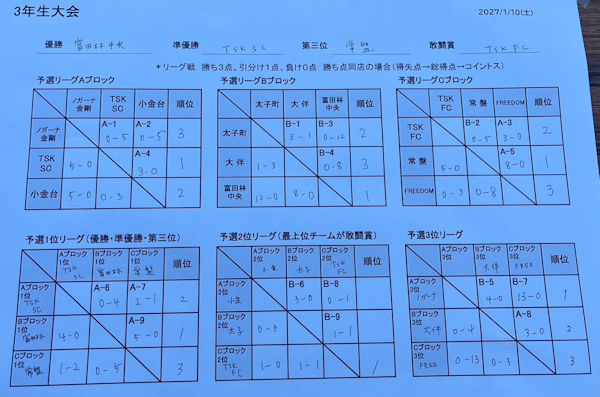 3年生大会 2027/1/10(土)
優勝 富田林中央 準優勝 TSK SC 第三位 常盤 敢闘賞 TSK FC
*リーグ戦 勝ち3点、引分け1点、負け0点 勝ち点同店の場合(得失点→総得点→コイントス)
予選リーグAブロック
ノガーナ金剛 TSK SC 小金台 順位
ノガーナ金剛 A-1 0-5 A-2 0-5 3
TSK SC 5-0 A-4 3-0 1
小金台 5-0 0-3 2
予選リーグBブロック
太子町 大伴 富田林中央 順位
太子町 B-1 3-1 B-3 0-12 2
大伴 1-3 B-4 0-8 3
富田林中央 12-0 8-0 1
予選リーグCブロック
TSK FC 常盤 FREEDOM 順位
TSK FC B-2 0-5 A-3 3-0 2
常盤 5-0 A-5 8-0 1
FREEDOM 0-3 0-8 3
予選1位リーグ(優勝・準優勝・第三位)
Aブロック1位 TSK SC Bブロック1位 富田林 Cブロック1位 常盤 順位
Aブロック1位 TSK SC A-6 0-4 A-7 2-1 2
Bブロック1位 富田林 4-0 A-9 5-0 1
Cブロック1位 常盤 1-2 0-5 3
予選2位リーグ(最上位チームが敢闘賞)
Aブロック2位 小金 Bブロック2位 太子 Cブロック2位 TSK FC 順位
Aブロック2位 小金 B-6 3-0 B-8 0-1
Bブロック2位 太子 0-3 B-9 1-1
Cブロック2位 TSK FC 1-0 1-1 1
予選3位リーグ
Aブロック3位 Bブロック3位 大伴 Cブロック3位 FREE 順位
Aブロック3位 ノガーナ B-5 4-0 B-7 13-0 1
Bブロック3位 大伴 0-4 A-8 3-0 2
Cブロック3位 FREE 0-13 0-3 3